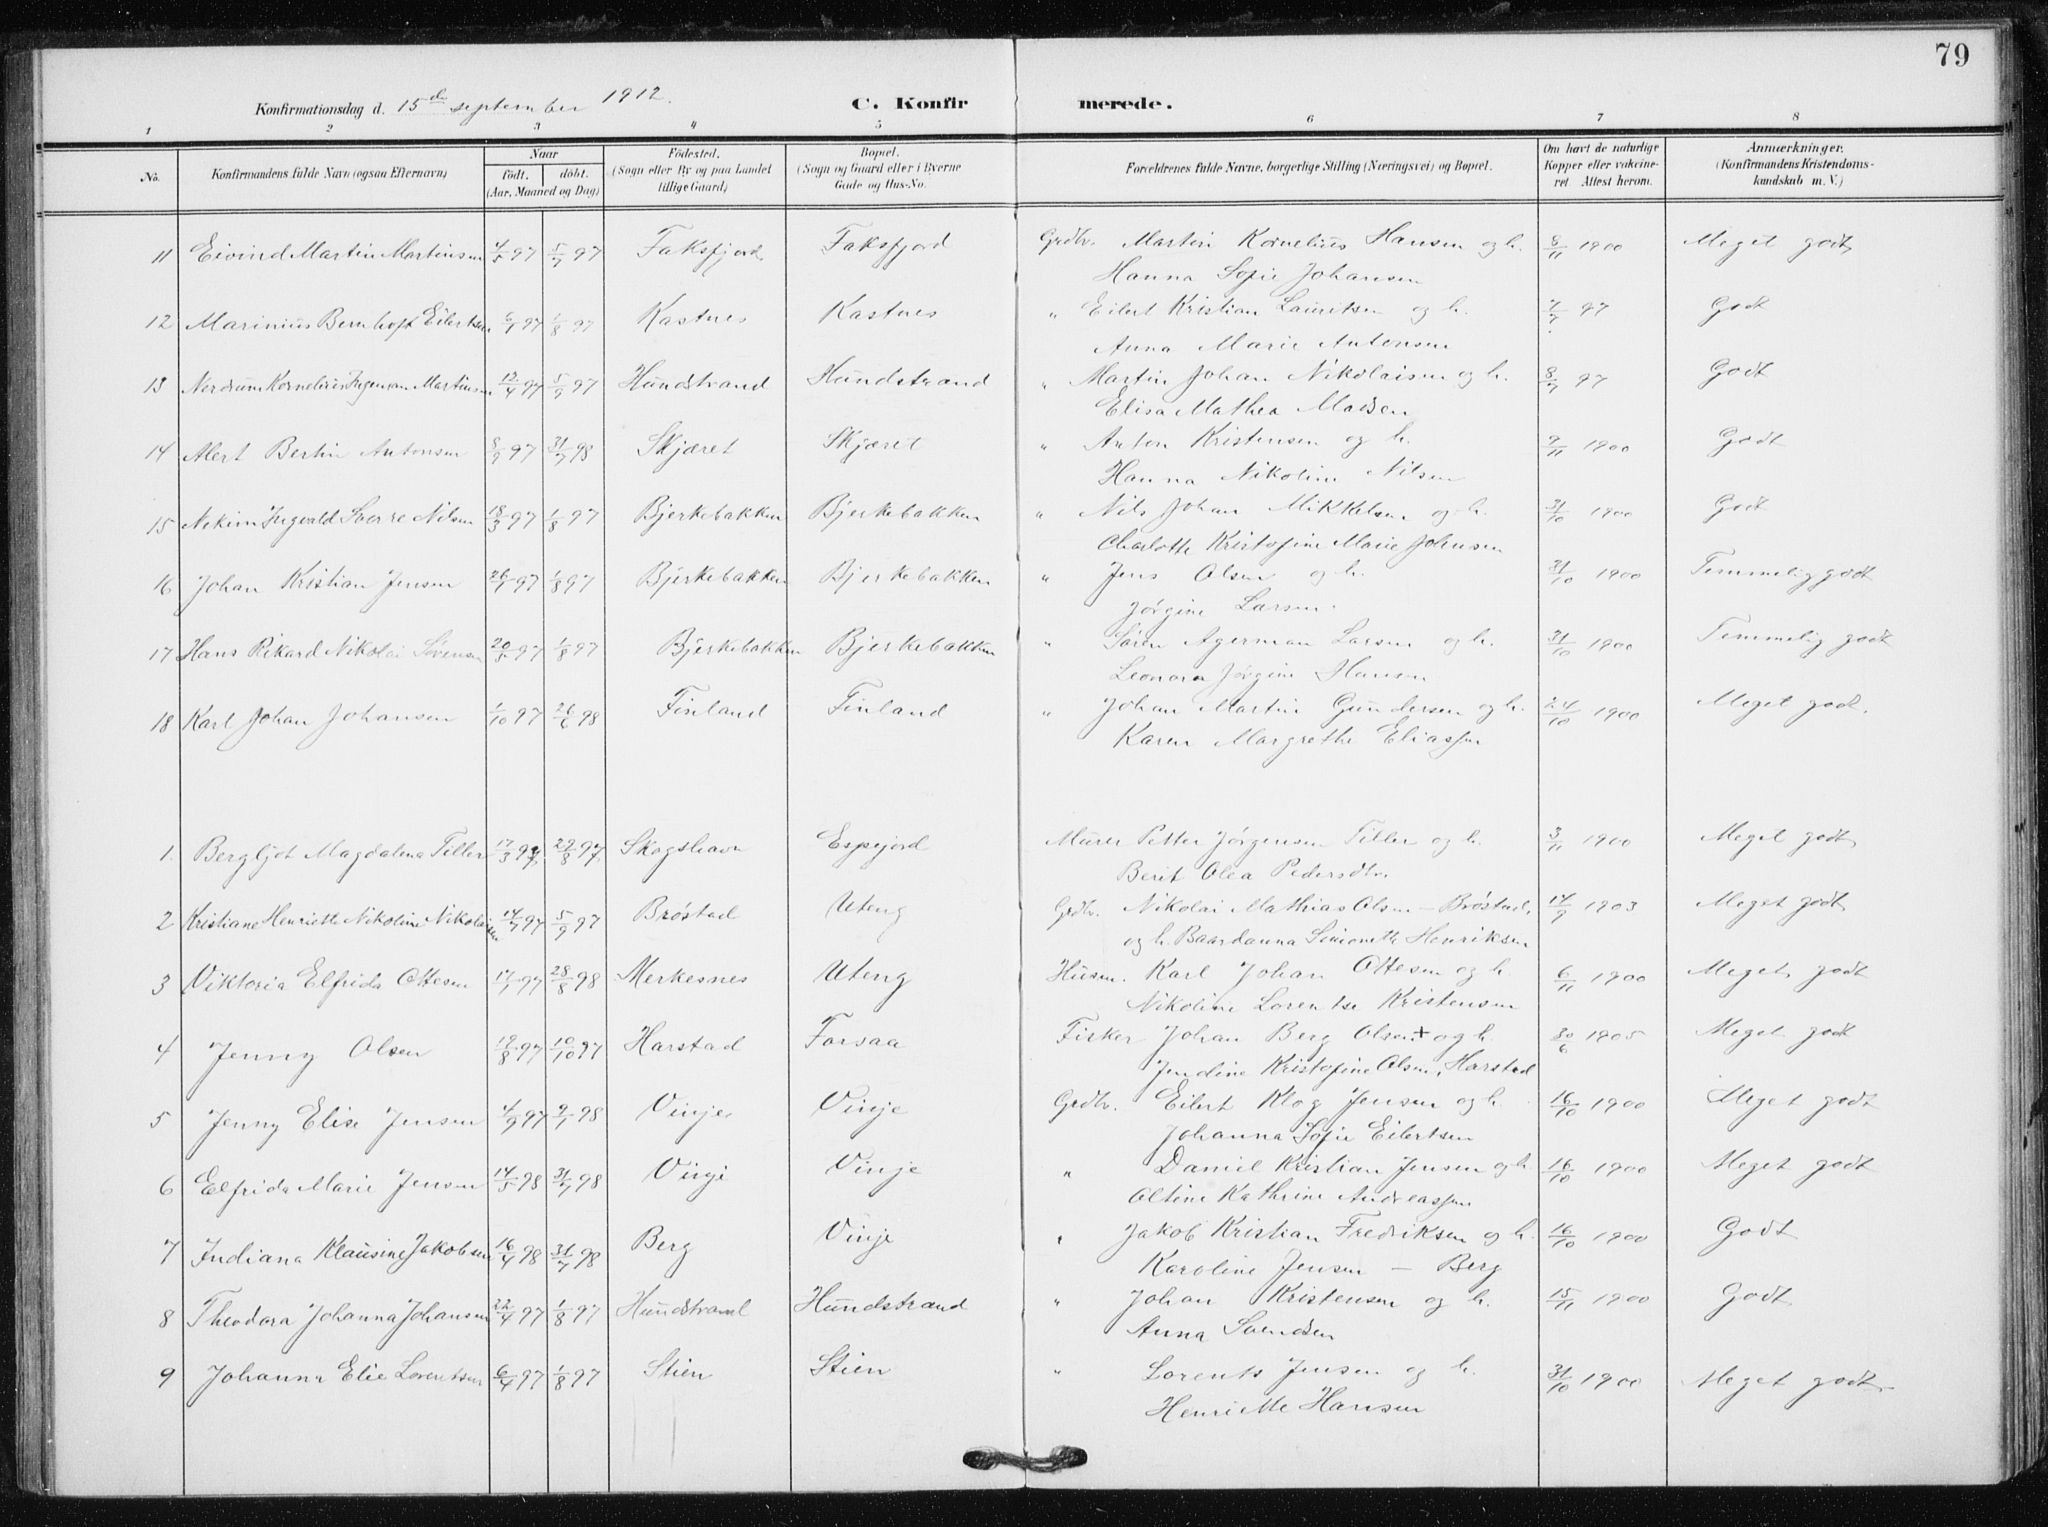 79
Konfirmationsdag d. 15de september 1912. C. Konfirmerede.
1 2 3 4 5 6 7 8
No. Konfirmandens fulde Navn (ogsaa Efternavn) Naar født. døbt. (Aar, Maaned og Dag) Fødested. (Sogn eller By og paa Landet tillige Gaard) Bopæl. (Sogn og Gaard eller i Byerne Gade og Hus-No. Forældrenes fulde Navne, borgerlige Stilling (Næringsvei) og Bopæl. Om havt de naturlige Kopper eller vakcineret Attest herom. Anmærkninger. (Konfirmandens Kristendomskundskab m. V.)
11 Eivind Martin Martinsen 4/5 97 5/7 97 Faksfjord Faksfjord Grdbr. Martin Kornelius Hansen og h. 8/11 1900 Meget godt
Hanna Sofie Johansen
12 Marinius Bernhoft Eilertsen 6/1 97 1/8 97 Kastnes Kastnes " Eilert Kristian Lauritsen og h. 7/7 97 Godt
Anna Marie Antonsen
13 Nordrum Kornelius Ingeman Martinsen 12/4 97 5/9 97 Hundstrand Hundstrand " Martin Johan Nikolaisen og h. 8/7 97 Godt
Elisa Mathea Madsen
14 Alert Bertin Antonsen 8/9 97 31/7 98 Skjæret Skjæret " Anton Kristensen og h. 9/11 1900 Godt
Hanna Nikoline Nilsen
15 Nekim Ingvald Sverre Nilsen 18/3 97 1/8 97 Bjerkebakken Bjerkebakken " Nils Johan Mikkelsen og h. 31/10 1900 Godt
Charlotte Kristofine Marie Johnsen
16 Johan Kristian Jensen 26/1 97 1/8 97 Bjerkebakken Bjerkebakken " Jens Olsen og h. 31/10 1900 Temmelig godt
Jørgine Larsen.
17 Hans Rikard Nikolai Sørensen 20/5 97 1/8 97 Bjerkebakken Bjerkebakken " Søren Agerman Larsen og h. 31/10 1900 Temmelig godt
Leonora Jørgine Hansen
18 Karl Johan Johansen 1/10 97 26/6 98 Finland Finland " Johan Martin Gundersen og h. 24/10 1900 Meget godt.
Karen Margrethe Eliassen
1. Bergljot Magdalena Tiller 17/3 97 29/8 97 Skogshavn Espejord Murer Petter Jørgensen Tiller og h. 3/11 1900 Meget godt
Berit Olea Pedersdtr.
2 Kristiane Henriette Nikoline Nikolaisen 14/7 97 5/9 97 Brøstad Uteng Grdbr. Nikolai Mathias Olsen - Brøstad, 14/9 1903 Meget godt
og h. Baardanna Simonette Henriksen
3 Viktoria Elfrida Ottesen 17/7 97 28/8 98 Merkesnes Uteng Husm. Karl Johan Ottesen og h. 6/11 1900 Meget godt
Nikoline Lorentse Kristensen
4 Jenny Olsen 19/8 97 10/10 97 Harstad Forsaa Fisker Johan Berg Olsen + og h. 30/6 1905 Meget godt
Jendine Kristofine Olsen, Harstad
5 Jenny Elise Jensen 4/9 97 9/1 98 Vinje Vinje Grdbr. Eilert Klog Jensen og h. 16/10 1900 Meget godt
Johanna Sofie Eilertsen
6 Elfrida Marie Jensen 14/5 98 31/7 98 Vinje Vinje " Daniel Kristian Jensen og h. 16/10 1900 Meget godt
Oltine Kathrine Andreassen
7 Indiana Klausine Jakobsen 16/4 98 31/7 98 Berg Vinje " Jakob Kristian Fredriksen og h. 16/10 1900 Godt
Karoline Jensen - Berg
8 Theodora Johanna Johansen 22/4 97 1/8 97 Hundstrand Hundstrand " Johan Kristensen og h. 15/11 1900 Godt
Anna Svendsen
9 Johanna Elie Lorentsen 6/4 97 1/8 97 Stien Stien " Lorents Jensen og h. 31/10 1900 Meget godt
Henriette Hansen